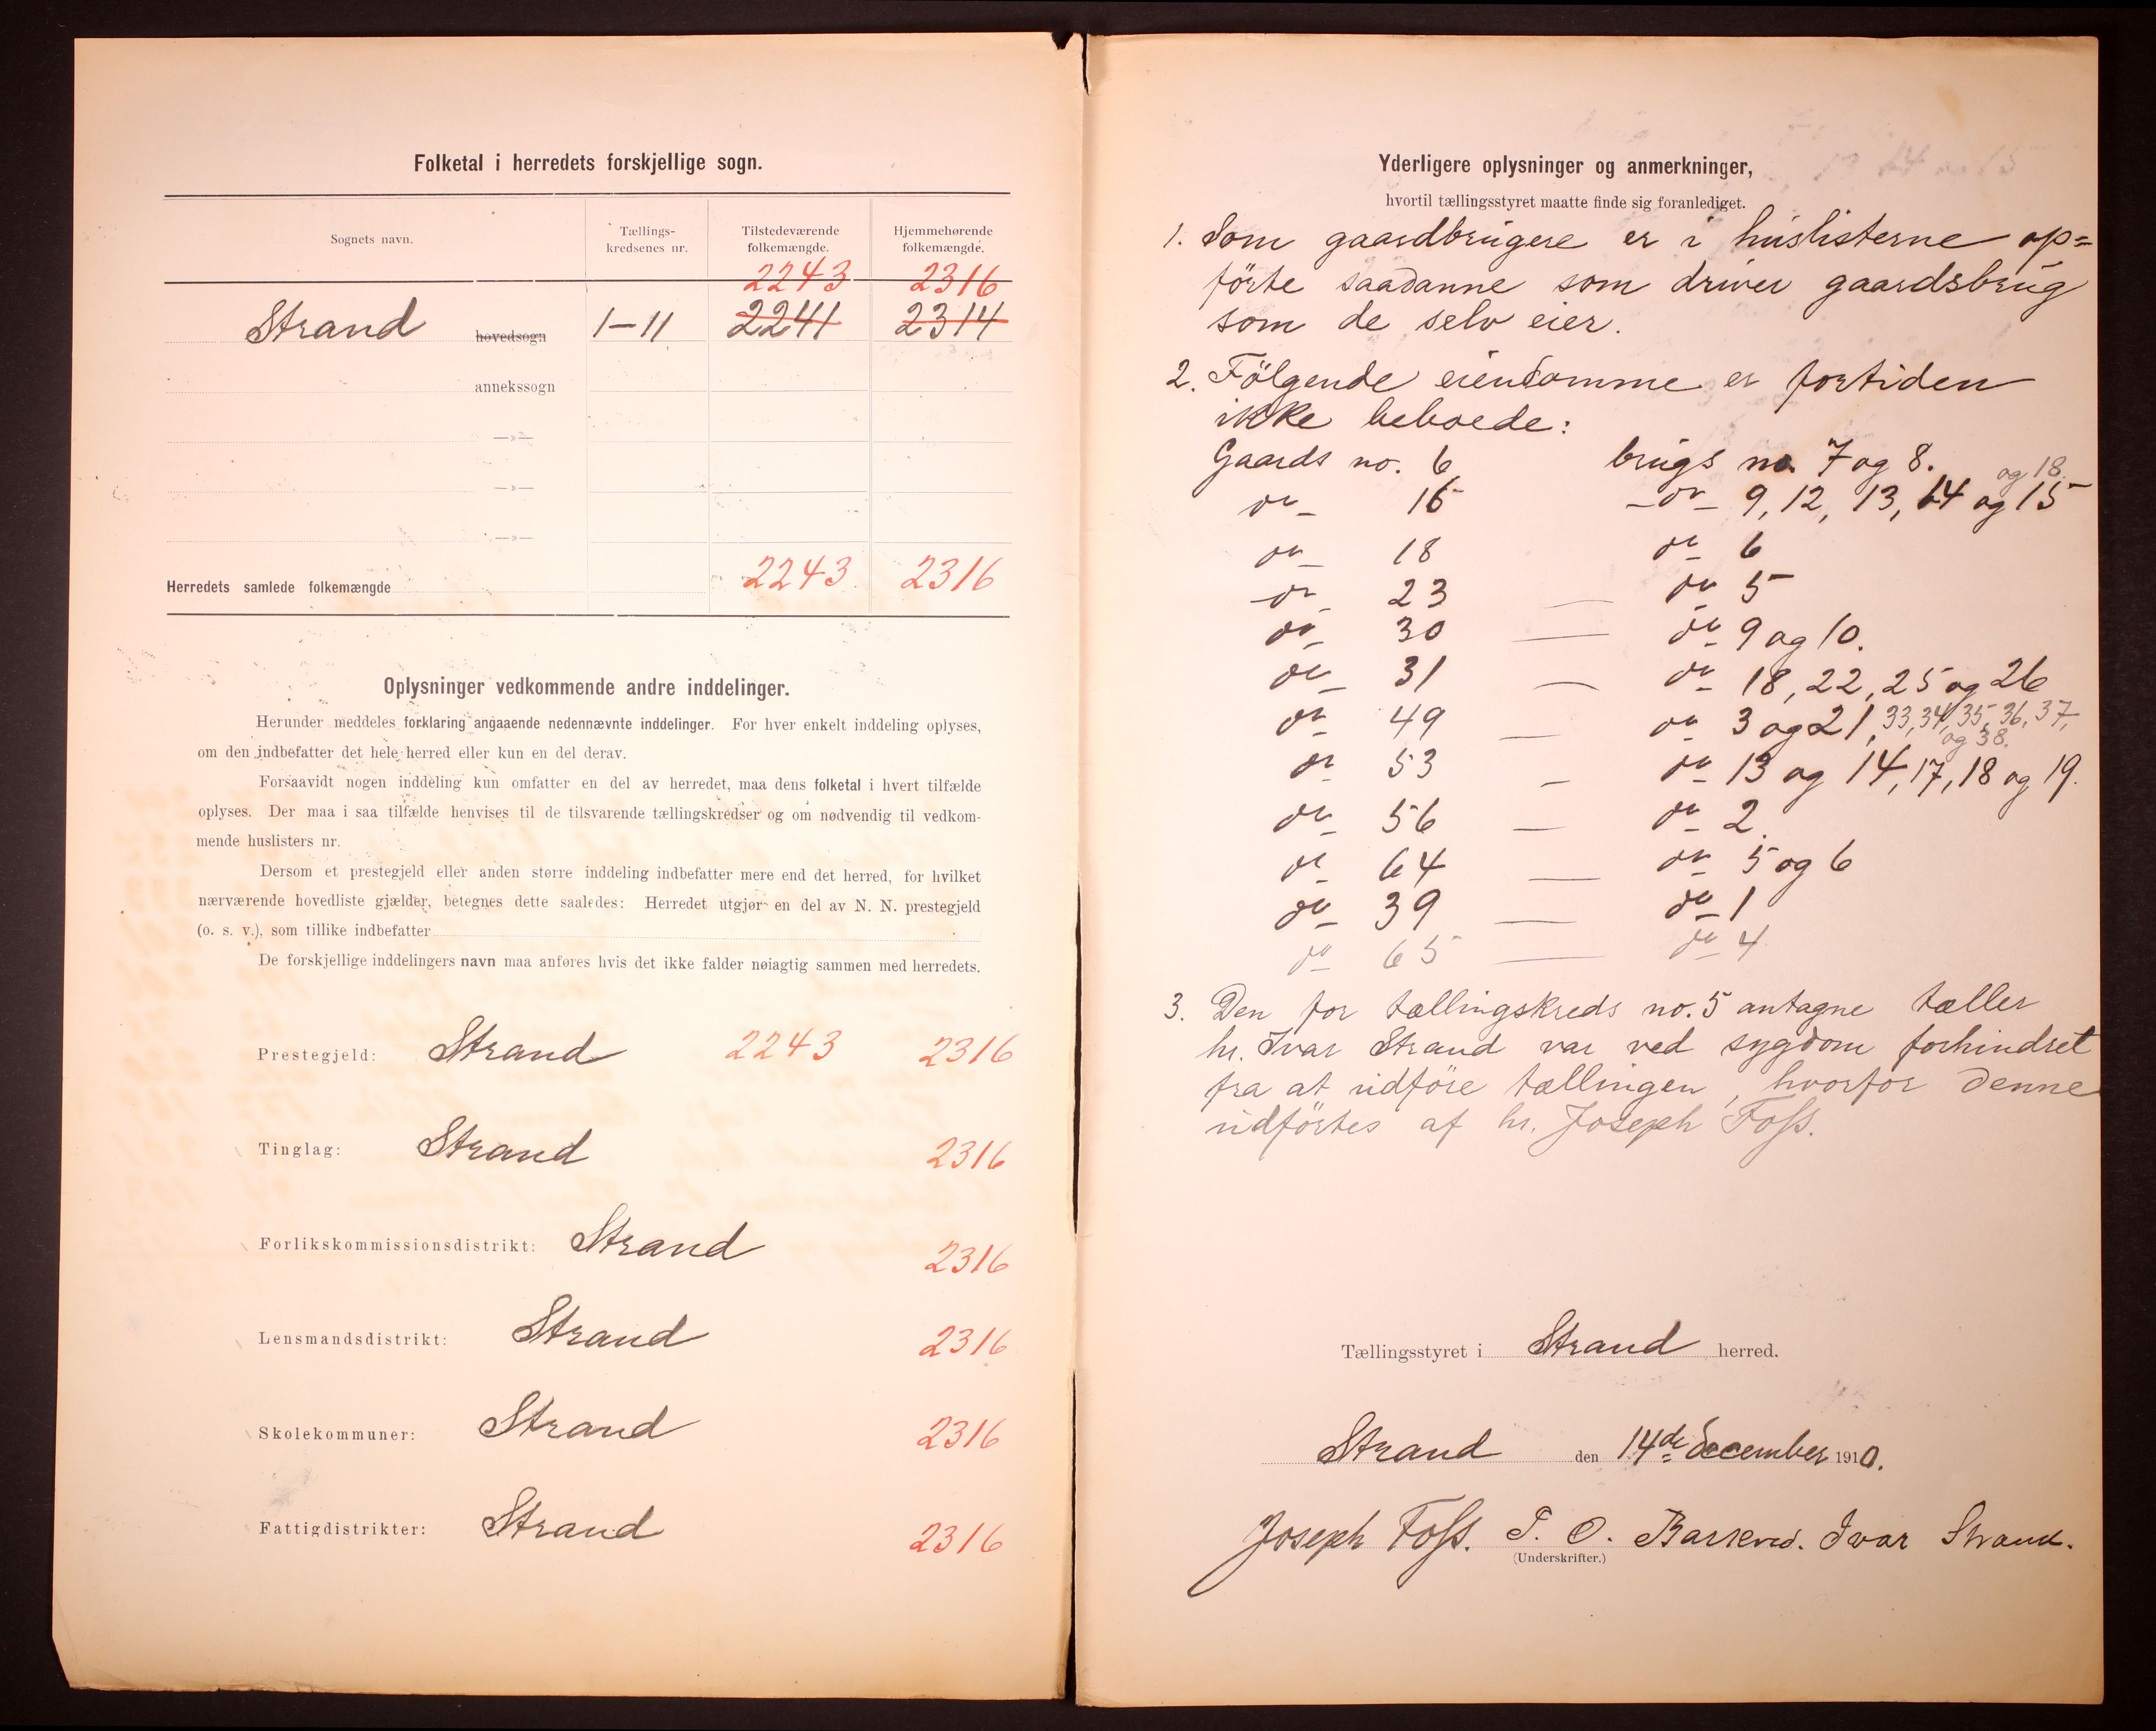 Folketal i herredets forskjellige sogn.
Sognets navn.
Tællings-
kredsenes nr.
Tilstedeværende
folkemængde.
Hjemmehørende
folkemængde.
2243 2316
Strand hovedsogn 1-11 2241 2314
annekssogn
—»—
—»—
—»—
Herredets samlede folkemængde 2243 2316
Oplysninger vedkommende andre inddelinger.
Herunder meddeles forklaring angaaende nedennævnte inddelinger. For hver enkelt inddeling oplyses,
om den indbefatter det hele herred eller kun en del derav.
Forsaavidt nogen inddeling kun omfatter en del av herredet, maa dens folketal i hvert tilfælde
oplyses. Der maa i saa tilfælde henvises til de tilsvarende tællingskredser og om nødvendig til vedkom-
mende huslisters nr.
Dersom et prestegjeld eller anden større inddeling indbefatter mere end det herred, for hvilket
nærværende hovedliste gjælder, betegnes dette saaledes: Herredet utgjør en del av N. N. prestegjeld
(o. s. v.), som tillike indbefatter
De forskjellige inddelingers navn maa anføres hvis det ikke falder nøiagtig sammen med herredets.
Prestegjeld: Strand 2243 2316
Tinglag: Strand 2316
Forlikskommissionsdistrikt: Strand 2316
Lensmandsdistrikt: Strand 2316
Skolekommuner: Strand 2316
Fattigdistrikter: Strand 2316
Yderligere oplysninger og anmerkninger,
hvortil tællingsstyret maatte finde sig foranlediget.
1. Som gaardbrugere er i huslisterne op=
förte saadanne som driver gaardsbrug
som de selv eier.
2. Fölgende eiendomme er fortiden
ikke beboede:
Gaards no. 6 brugs no. 7 og 8.
og 18.
do 16 do 9, 12, 13, 14 og 15
do 18 do 6
do 23 — do 5
do 30 — do 9 og 10.
do 31 — do 18, 22, 25 og 26
do 49 — do 3 og 21, 33, 34, 35, 36, 37,
og 38.
do 53 — do 13 og 14, 17, 18 og 19.
do 56 — do 2.
do 64 — do 5 og 6
do 39 — do 1
do 65 — do 4
3. Den for tællingskreds no. 5 antagne tæller
hr. Ivar Strand var ved sygdom forhindret
fra at udföre tællingen, hvorfor denne
udförtes af hr. Joseph Foss.
Tællingsstyret i Strand herred.
Strand den 14de december 1910.
Joseph Foss. T. O. Ivar Strand.
(Underskrifter.)